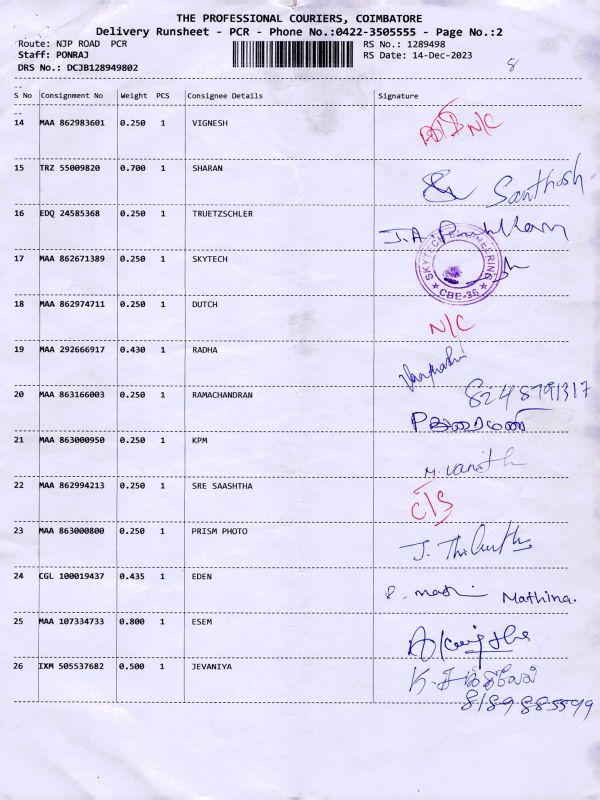 THE PROFESSIONAL COURIERS, COIMBATORE
Delivery Runsheet - PCR - Phone No.:0422-3505555 - Page No.:2
Route: NJP ROAD PCR RS No.: 1289498
Staff: PONRAJ RS Date: 14-Dec-2023
DRS No.: DCJB128949802 8
S No Consignment No Weight PCS Consignee Details Signature
14 MAA 862983601 0.250 1 VIGNESH N/C
15 TRZ 55009820 0.700 1 SHARAN Santhosh
16 EDQ 24585368 0.250 1 TRUETZSCHLER J.A.
17 MAA 862671389 0.250 1 SKYTECH SKYTECH ENGINEERING ★ CBE-35 ★
18 MAA 862974711 0.250 1 DUTCH N/C
19 MAA 292666917 0.430 1 RADHA
20 MAA 863166003 0.250 1 RAMACHANDRAN 8248791317
21 MAA 863000950 0.250 1 KPM M. Vanith
22 MAA 862994213 0.250 1 SRE SAASHTHA C/S
23 MAA 863000800 0.250 1 PRISM PHOTO J.
24 CGL 100019437 0.435 1 EDEN Mathina.
25 MAA 107334733 0.800 1 ESEM
26 IXM 505537682 0.500 1 JEVANIYA K. சக்திவேல்
8189885599